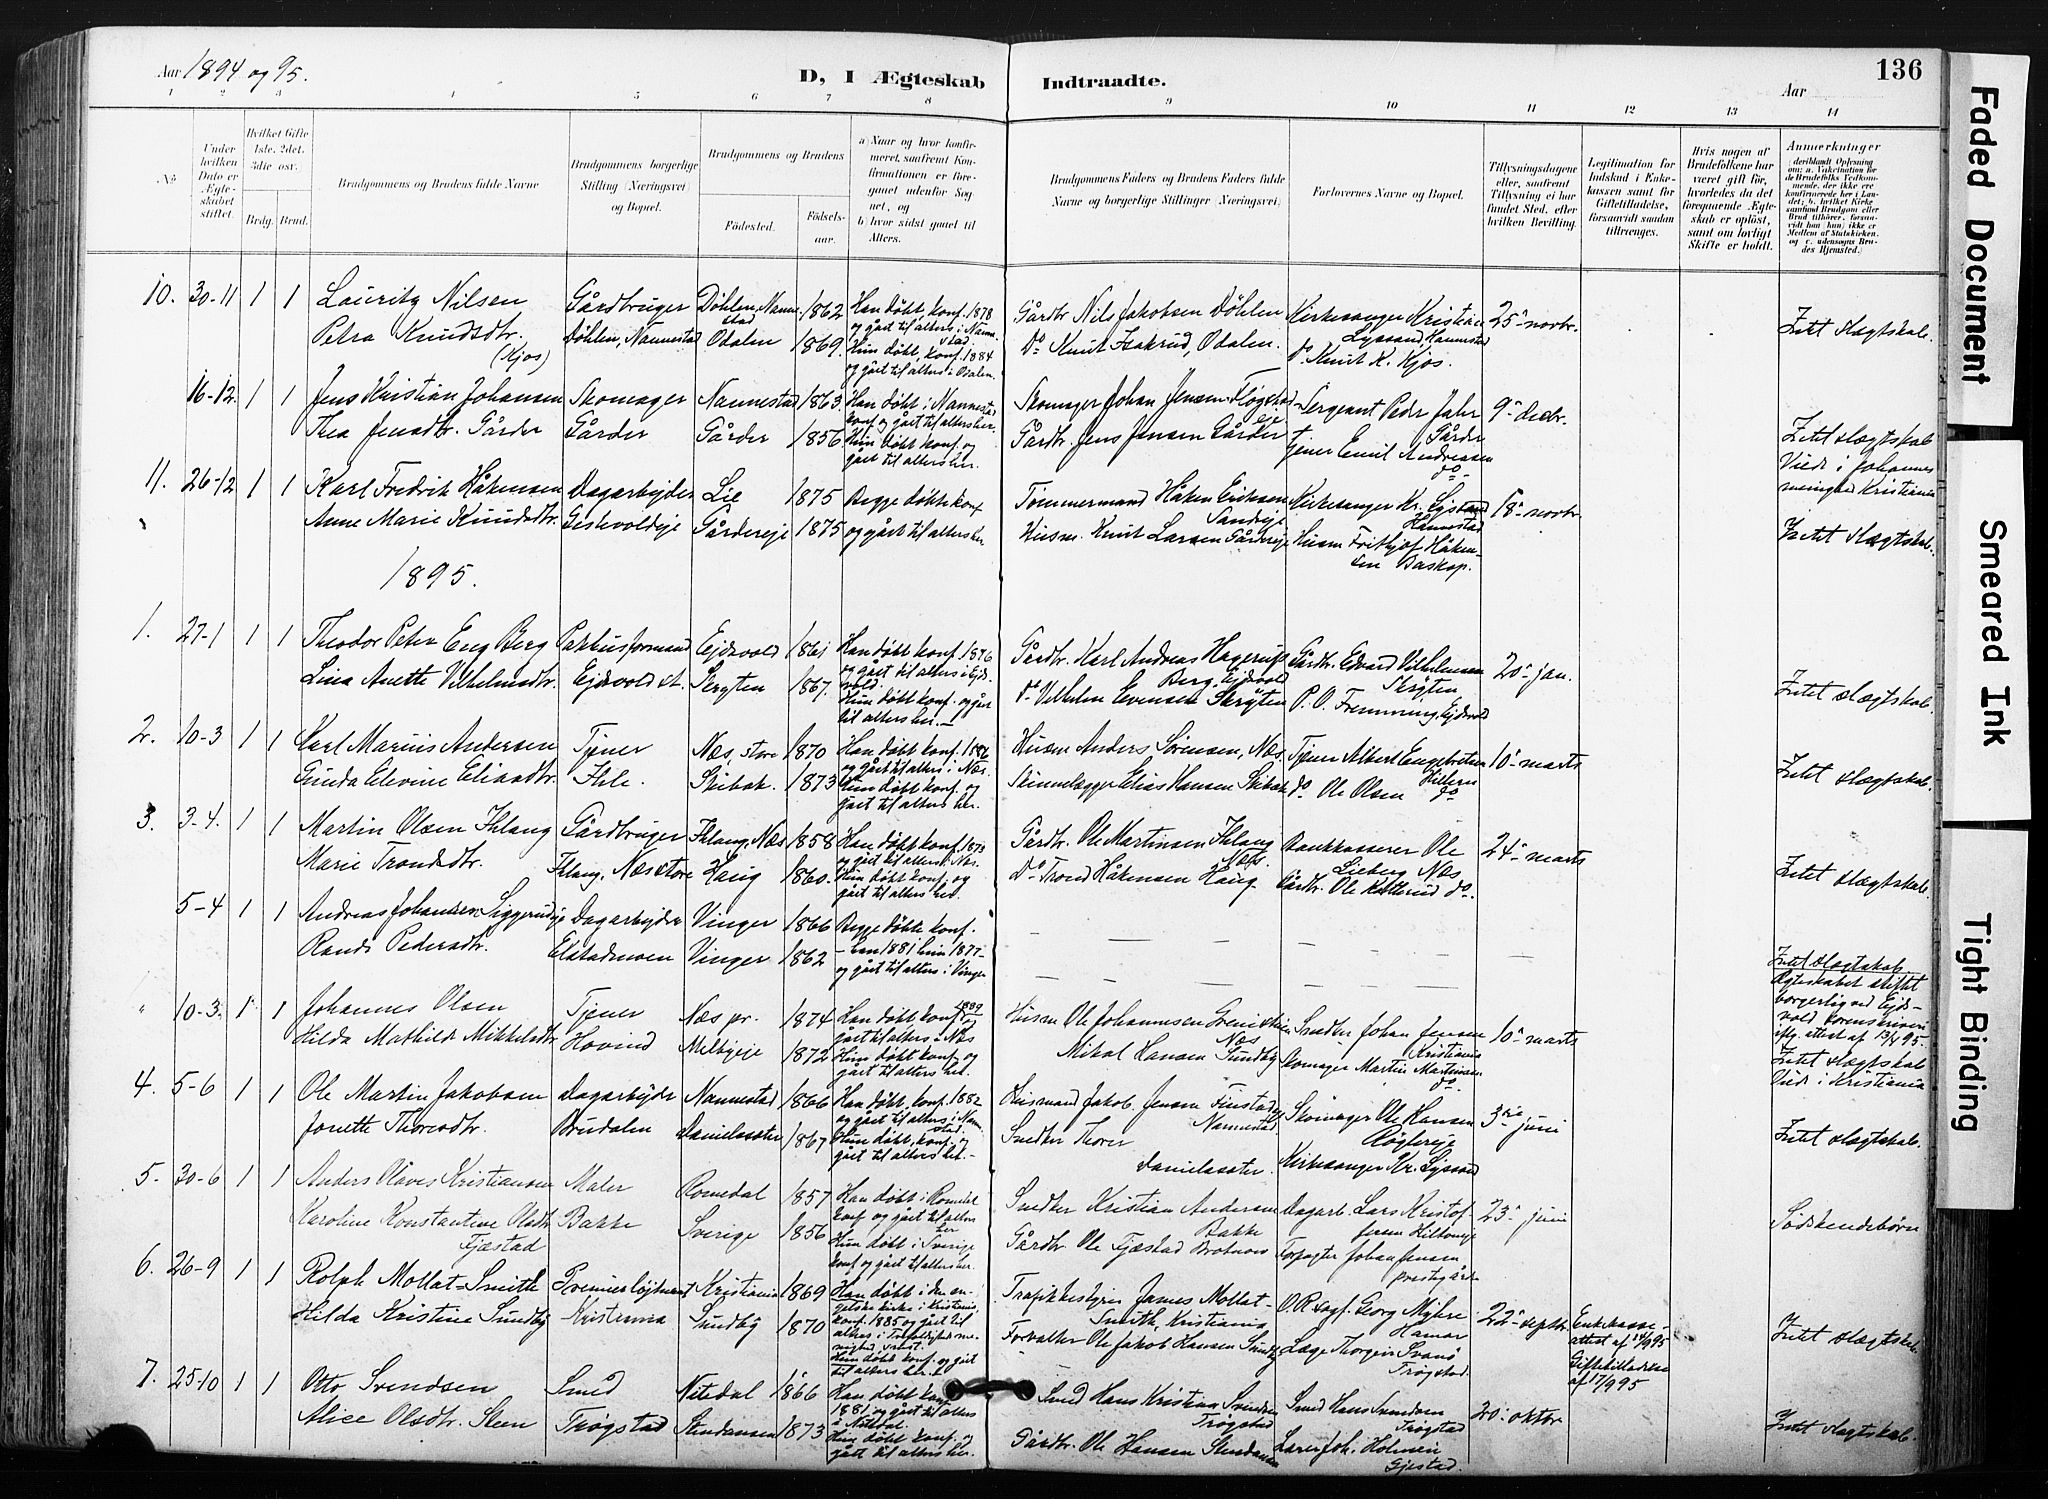 Aar 1894 og 95.
D, I Ægteskab Indtraadte.
136
Aar
1 2 3 4 5 6 7 8 9 10 11 12 13 14
No.
Under hvilken Dato er Ægteskabet stiftet.
Hvilket Gifte 1ste, 2det, 3die osv.
Brdg. Brud.
Brudgommens og Brudens fulde Navne
Brudgommens borgerlige Stilling (Næringsvei) og Bopæl.
Brudgommens og Brudens
Fødested.
Fødselsaar.
a) Naar og hvor konfirmeret, saafremt Konfirmationen er foregaaet udenfor Sognet, og
b) hvor sidst gaaet til Alters.
Brudgommens Faders og Brudens Faders fulde Navne og borgerlige Stillinger (Næringsvei)
Forlovernes Navne og Bopæl.
Tillysningsdagene eller, saafremt Tillysning ei har fundet Sted, efter hvilken Bevilling.
Legitimation for Indskud i Enkekassen samt for Giftetilladelse, forsaavidt saadan tiltrænges.
Hvis nogen af Brudefolkene har været gift før, hvorledes da det foregaaende Ægteskab er opløst, samt om lovligt Skifte er holdt.
Anmerkninger
10. 30-11 1 1 Lauritz Nilsen Gårdbruger Døhlen, Nannestad 1862 Han døbt, konf. 1878 og gået til alters i Nannestad. Gårdbr. Nils Jakobsen Døhlen Kirkesanger Kristian Lyssand, Hannestad 25de novbr. Intet slægtskab.
Petra Knudsdtr. (Kjos) Døhlen, Nannestad Odalen 1869. Hun døbt, konf. 1884 og gået til alters i Odalen. Do Knut , Odalen. Do. Knut K. Kjos.
16-12. 1 1 Jens Kristian Johansen Skomager Nannestad 1863. Han døbt i Nannestad konf. og gået til alters her. Skomager Johan Jensen Sergeant Peder Jahr Gårder 9de decbr. Intet slægtskab
Thea Jensdtr. Gårder Gårder Gårder 1856 Hun døbt konf. og gået til alters her. Gårdbr. Jens Jensen Gårder Tjener Emil Andreassen do. Viede i Johannes menighed Kristiania
11. 26-12 1 1 Karl Fredrik Håkensen Dagarbejder Lie 1875 Begge døbt konf Tømmermand Håken Eriksen Kirkesanger Kr. Lyssand Hannestad 18de novbr.
Anne Marie Knudsdtr. Gårdereje 1875 og gået til alters her Husm. Knut Larsen Gårdereje Husm Frithjof Håkensen Baskop. Intet slægtskab.
1895.
1. 27-1 1 1 Theodor Peter Eng Berg Pakhusformand Ejdsvold 1861 Han døbt konf. 1876 og gået til alters i Ejdsvold. Gårdbr. Karl Andreas Hagerup Berg, Ejdsvold Gårdbr. Edvard Vilhelmsen Skrøten 20de jan.
Lina Anette Vilhelmsdtr. Ejdsvold st. Skrøten 1867. Hun døbt konf. og gået til alters her. do Vilhelm Evensen Skrøten P. O. Fremming, Ejdsvold Intet slægtskab.
2. 10-3 1 1 Karl Marius Andersen Tjener Næs, store 1870 Han døbt konf. 1886 og gået til alters i Næs. Husm Anders Sørensen, Næs. Tjener Albert Engebretsen 10de marts
Gunda Elevine Eliasdtr. Ihle. Skibak. 1873 Hun døbt konf. og gået til alters her. Elias Hansen Skibak do Ole Olsen do Intet slægtskab.
3. 3-4. 1 1 Martin Olsen Ihlang Gårdbruger Ihlang, Næs 1858 Han døbt konf. 1873 og gået til alters i Næs. Gårdbr. Ole Martinsen Ihlang Næs. Bankkasserer Ole Lieberg Næs 24de marts
Marie Trondsdtr. Ihlang, Næs store Haug 1860. Hun døbt konf. og gået til alters her. Do Trond Håkensen Haug. Gårdbr. Ole do. Intet slægtskab.
5-4 1 1 Andreas Johansen Siggerudeje Dagarbejder Vinger 1866 Begge døbte konf.
Randi Pedersdtr. Elstadmoen Vinger 1862 - han 1881 hun 1877 - og gået til alters i Vinger Intet slægtskab Ægteskabet stiftet borgerlig ved Ejdsvold sorenskriveri iflg. attest af 13/4 95.
" 10-3. 1 1 Johannes Olsen Tjener Næs pr. 1874 Han døbt konf. 1889 og gået til alters i Næs Husm Ole Johannesen Næs Snedker Johan Jensen Kristiania 10de marts Intet slægtskab
Hilda Mathilde Mikkelsdtr. Hovind Melbyeje 1872 Hun døbt konf. og gået til alters her. Mikal Hansen Sundby Skomager Martin Martinsen do. Viede i Kristiania
4. 5-6 1 1 Ole Martin Jakobsen Dagarbejder Nannestad 1866 Han døbt, konf. 1882 og gået til alters i Nannestad. Husmand Jakob Jensen Nannestad, Skomager Ole Hansen 3die juni
Jonette Thoresdtr. Brudalen Danielssæter 1867 Hun døbt, konf. og gået til alters her. Snedker Thorer Danielssæter. Kirkesanger Kr. Lyssand Intet slægtskab.
5. 30-6 1 1 Anders Olaves Kristiansen Maler Romedal 1857 Han døbt i Romedal konf og gået til alters her Snedker Kristian Andersen Bakke Dagarb. Lars Kristoffersen 23de juni
Karoline Konstantine Olsdtr. Fjæstad Bakke Sverige 1856 Hun døbt i Sverige konf og gået til alters her. Gårdbr. Ole Fjæstad Forpagter Johan Jensen prestegård Sødskendebørn
6. 26-9 1 1 Rolph Mollat-Smith Premierløjtnant Kristiania 1869 Han døbt i den engelske kirke i Kristiania, konf. 1885 og gået til alters i Trefoldigheds menighed Trafikbestyrer James Mollat-Smith, Kristiania O.R.sagf. Georg Myhre Hamar 22de septbr. Enkekasse-attest af 14/9 95
Hilda Kristine Sundby Kristiania Sundby 1870 Hun døbt konf. og gået til alters her. Forvalter Ole Jakob Hansen Sundby Læge Thorgeir Svanø Trøgstad. Giftetilladelse af 17/9 95 Intet slægtskab.
7. 25-10 1 1 Otto Svendsen Smed Nitedal 1866 Han døbt konf 1881 og gået til alters i Nitedal. Smed Hans Kristian Svendsen Trøgstad Smed Hans Svendsen Trøgstad 20de oktbr.
Alice Olsdtr. Steen Trøgstad Stendansen 1873 Hun døbt konf. og gået til alters her. Gårdbr. Ole Hansen Stendansen Joh. Holmsen Gjestad. Intet slægtskab.
Faded Document
Smeared Ink
Tight Binding